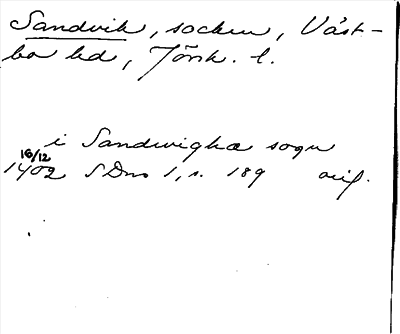 Sandvik, socken, Väst-
bo hd, Jönk. l.
i Sandwigha sogn
16/12
1402 SDns 1, s. 189 orig.